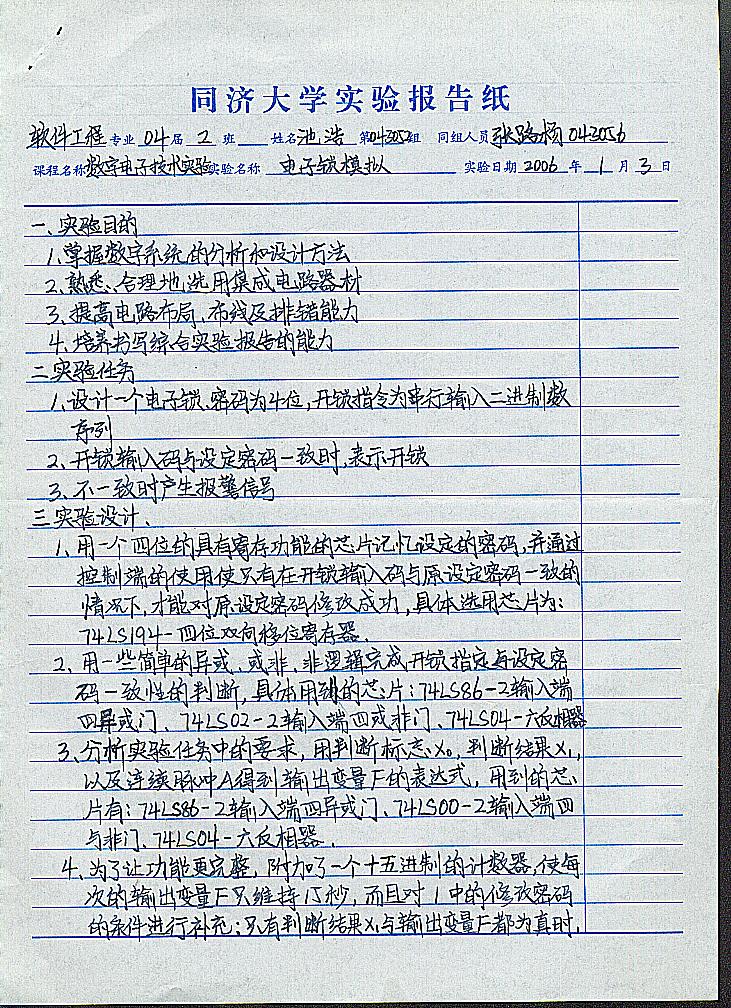 同济大学实验报告纸
软件工程 专业 04 届 2 班 姓名 池浩 第043052组 同组人员 张路杨 043056
课程名称 数字电子技术实验 实验名称 电子锁模拟 实验日期 2006 年 1 月 3 日
一、实验目的
1、掌握数字系统的分析和设计方法
2、熟悉、合理地选用集成电路器材
3、提高电路布局、布线及排错能力
4、培养书写综合实验报告的能力
二、实验任务
1、设计一个电子锁、密码为4位,开锁指令为串行输入二进制数
序列
2、开锁输入码与设定密码一致时,表示开锁
3、不一致时产生报警信号
三、实验设计、
1、用一个四位的具有寄存功能的芯片记忆设定的密码,并通过
控制端的使用使只有在开锁输入码与原设定密码一致的
情况下,才能对原设定密码修改成功,具体选用芯片为:
74LS194-四位双向移位寄存器.
2、用一些简单的异或、或非、非逻辑完成开锁指定与设定密
码一致性的判断,具体用到的芯片:74LS86-2输入端
四异或门、74LS02-2输入端四或非门、74LS04-六反相器
3、分析实验任务中的要求,用判断标志X₀,判断结果X₁,
以及连续脉冲A得到输出变量F的表达式,用到的芯
片有:74LS86-2输入端四异或门、74LS00-2输入端四
与非门、74LS04-六反相器.
4、为了让功能更完整,附加了一个十五进制的计数器,使每
次的输出变量F只维持15秒,而且对1中的修改密码
的条件进行补充:只有判断结果X₁与输出变量F都为真时,